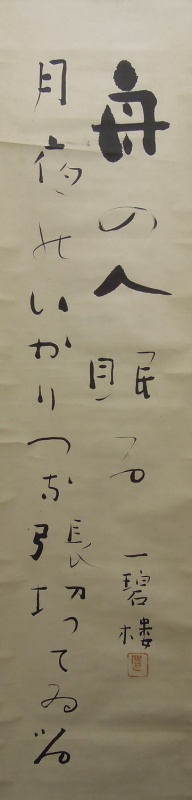 舟の人眠る
月夜のいかりつな張切つてゐる
一碧楼